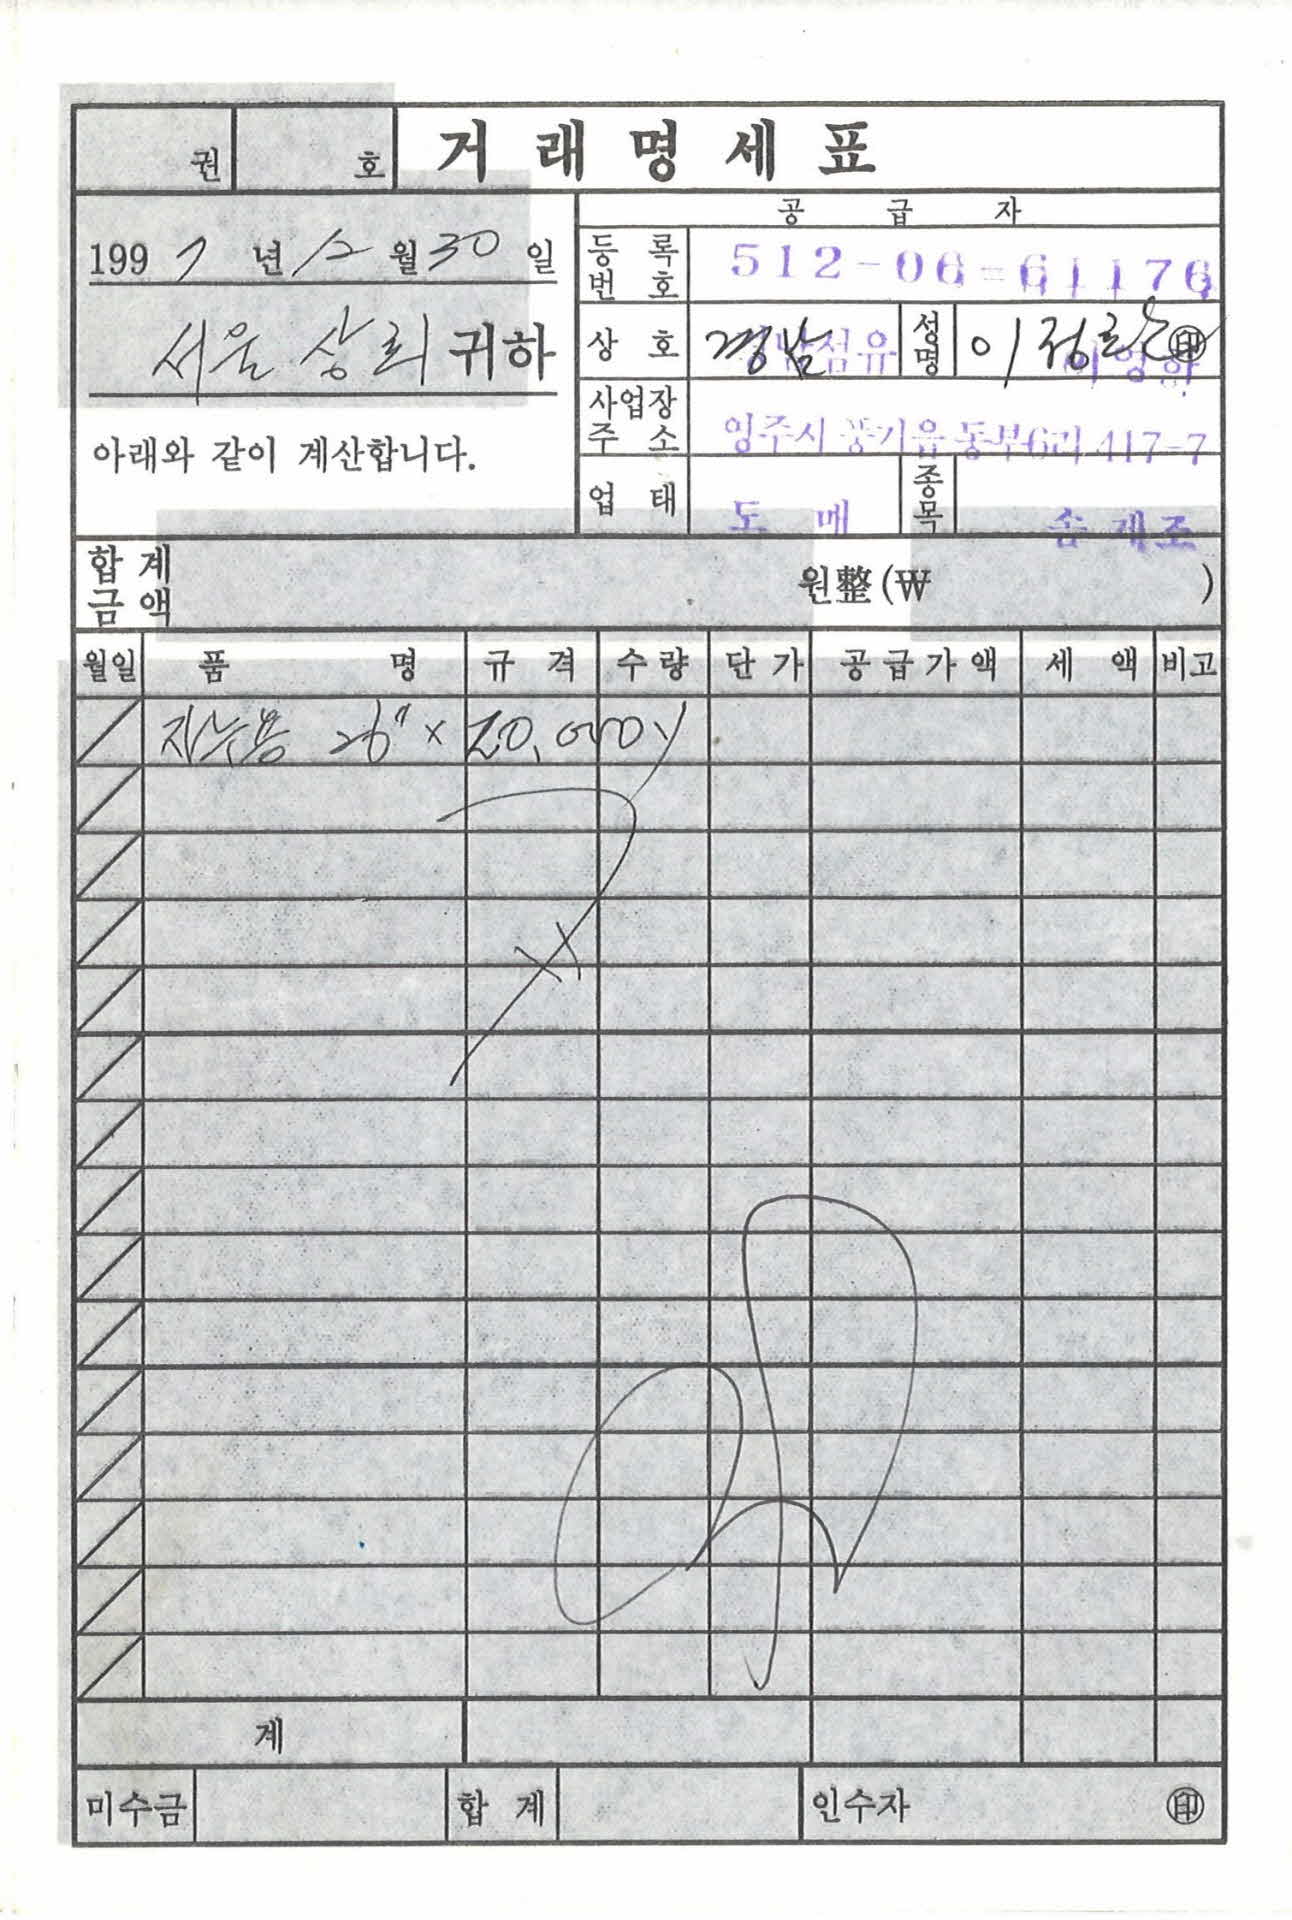 권 호 거래명세표
공급자
1997년 12월 30일
등록번호 512-06-61176
서울 상회 귀하
상호 경남섬유 성명 이 정 印
사업장주소 영주시 풍기읍 동부6리 417-7
아래와 같이 계산합니다.
업태 도매 종목
합계금액 원整(₩ )
월일 품명 규격 수량 단가 공급가액 세액 비고
자누용 26" x 20,000y
계
미수금 합계 인수자 印